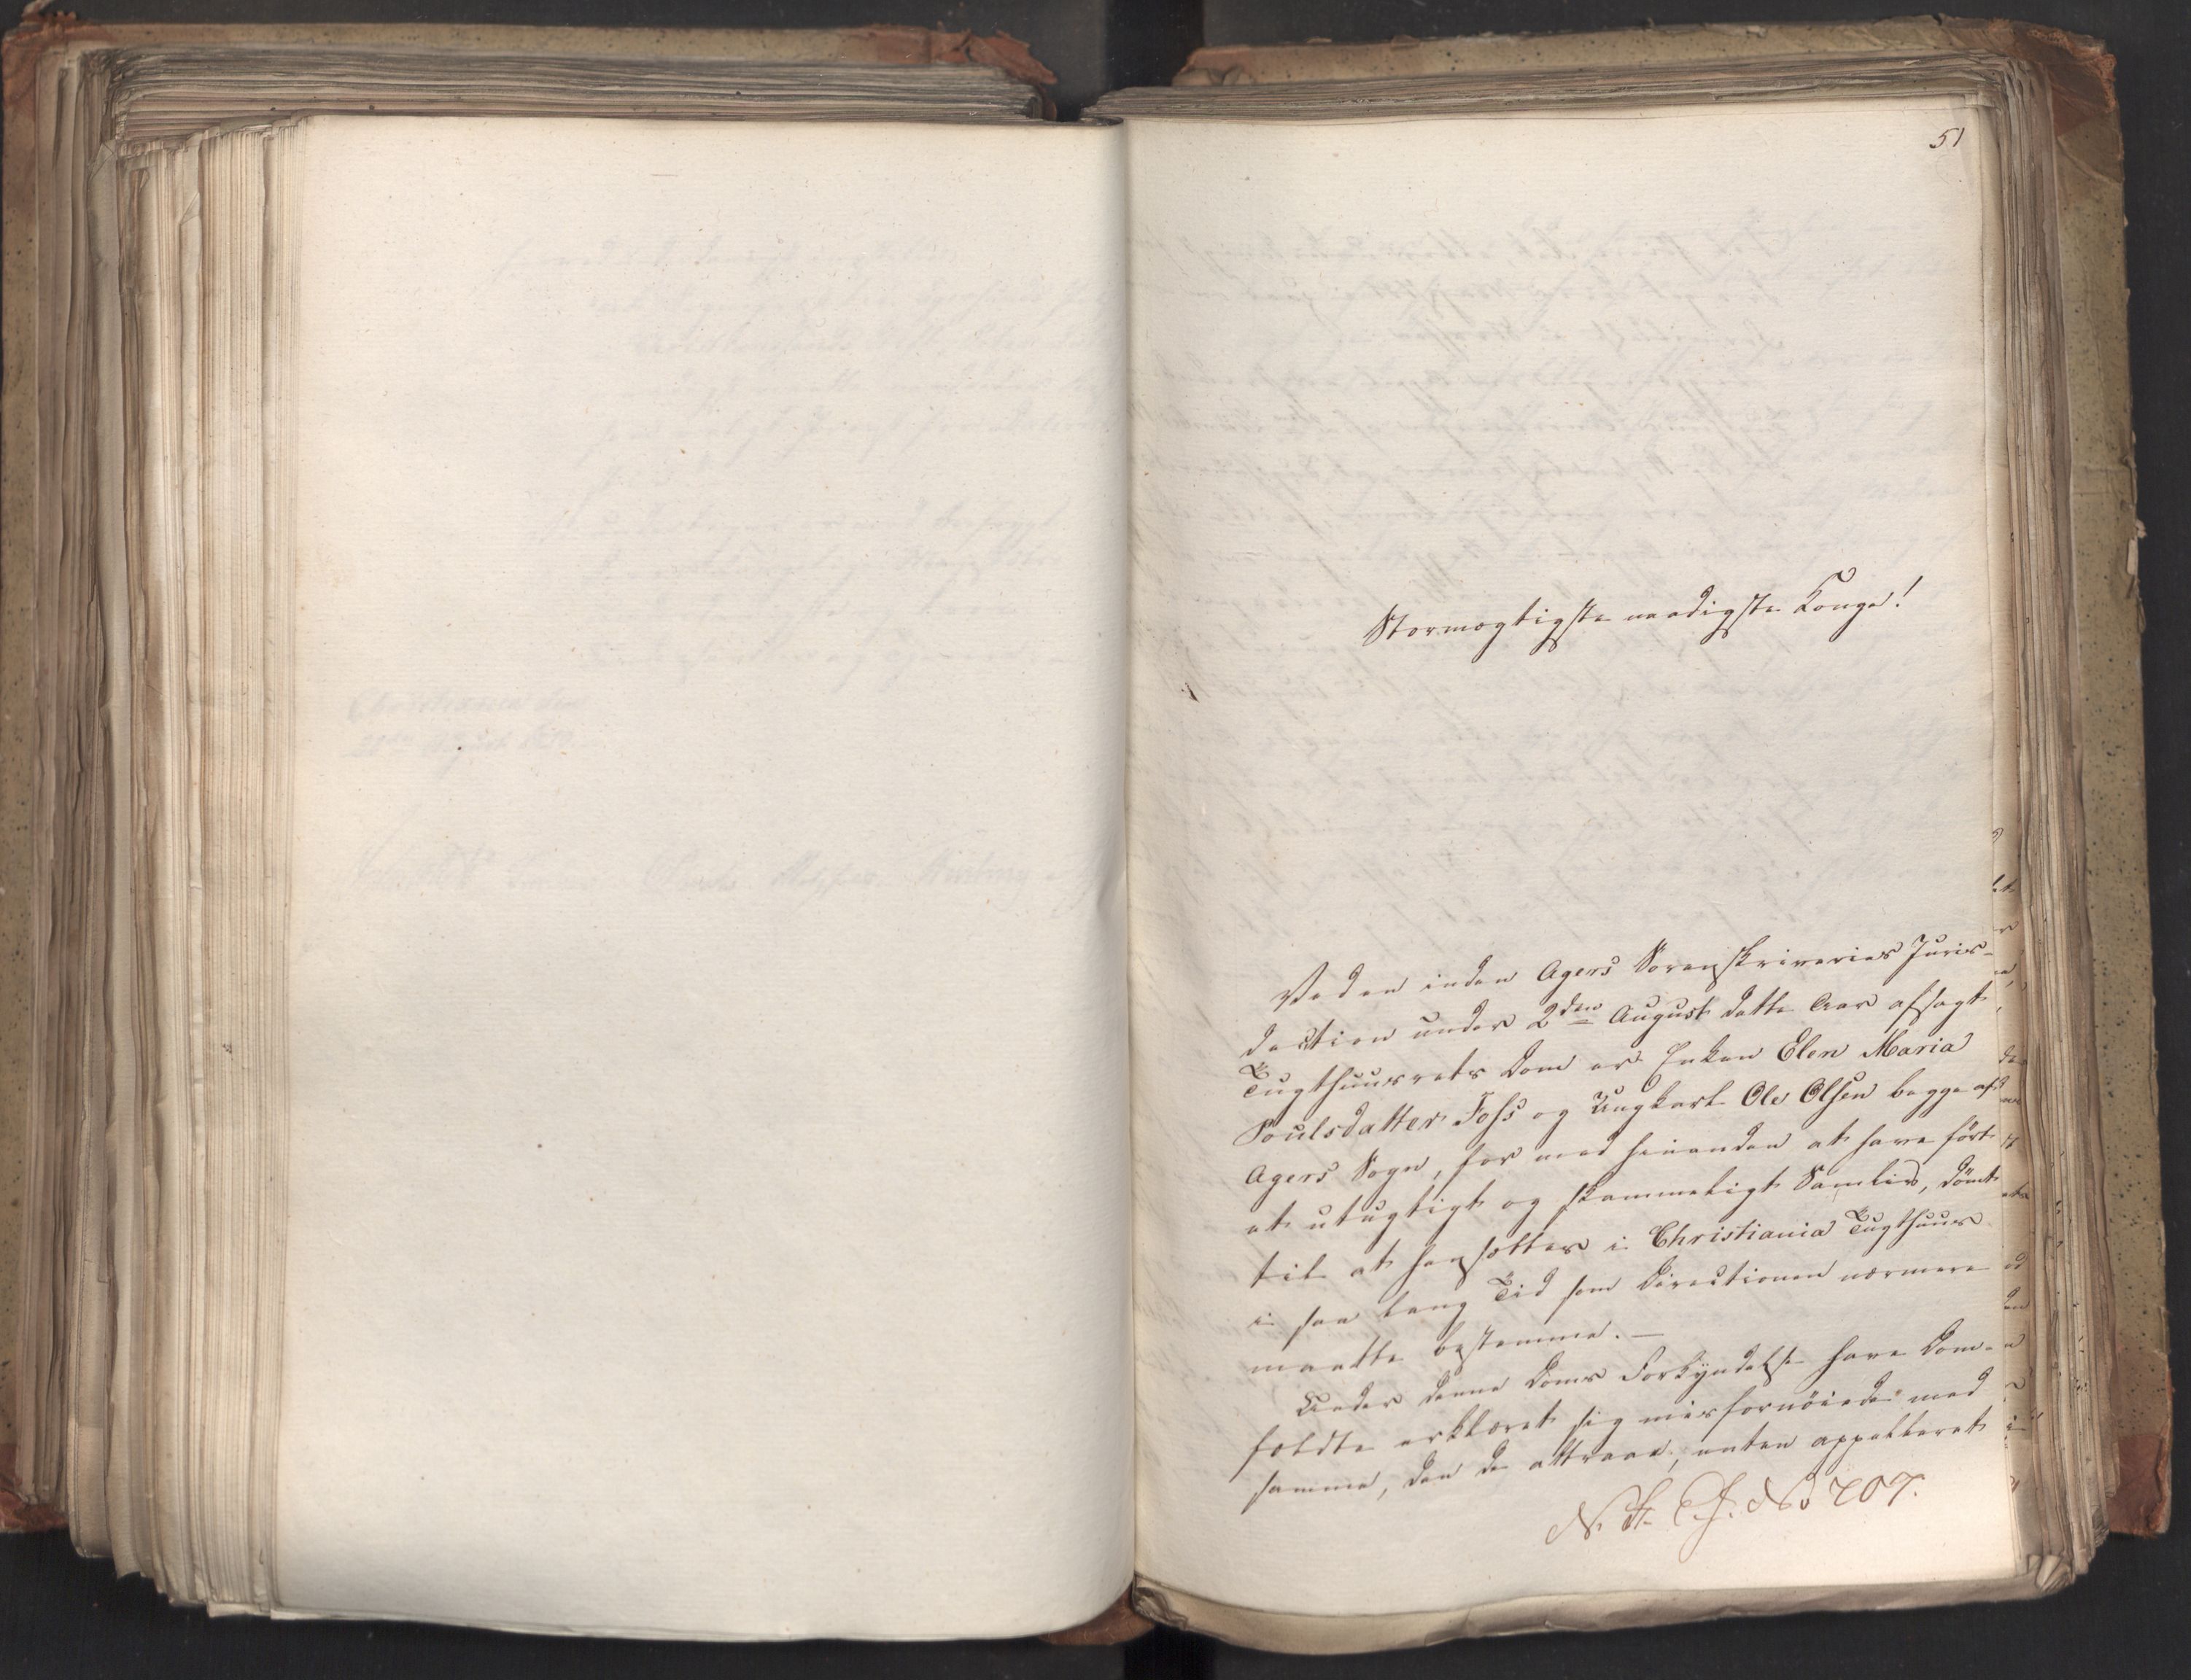 51
Stormægtigste naadigste Konge!
Ved en inden Agers Sorenskriveries Juris-
diction under 2den August dette Aar afsagt
Tugthuusrets Dom er Enken Elen Maria
Poulsdatter Foss og Ungkarl Ole Olsen begge af
Agers Sogn, for med hinanden at have ført
et utugtigt og skammeligt Samliv, dømt
til at hensættes i Christiania Tugthuus
i saa lang Tid som Directionen nærmere
maatte bestemme. —
Under denne Doms Forkyndelse have Dom-
fældte erklæret sig misfornøiede med
samme, den de attraae, enten appelleret
No 707.